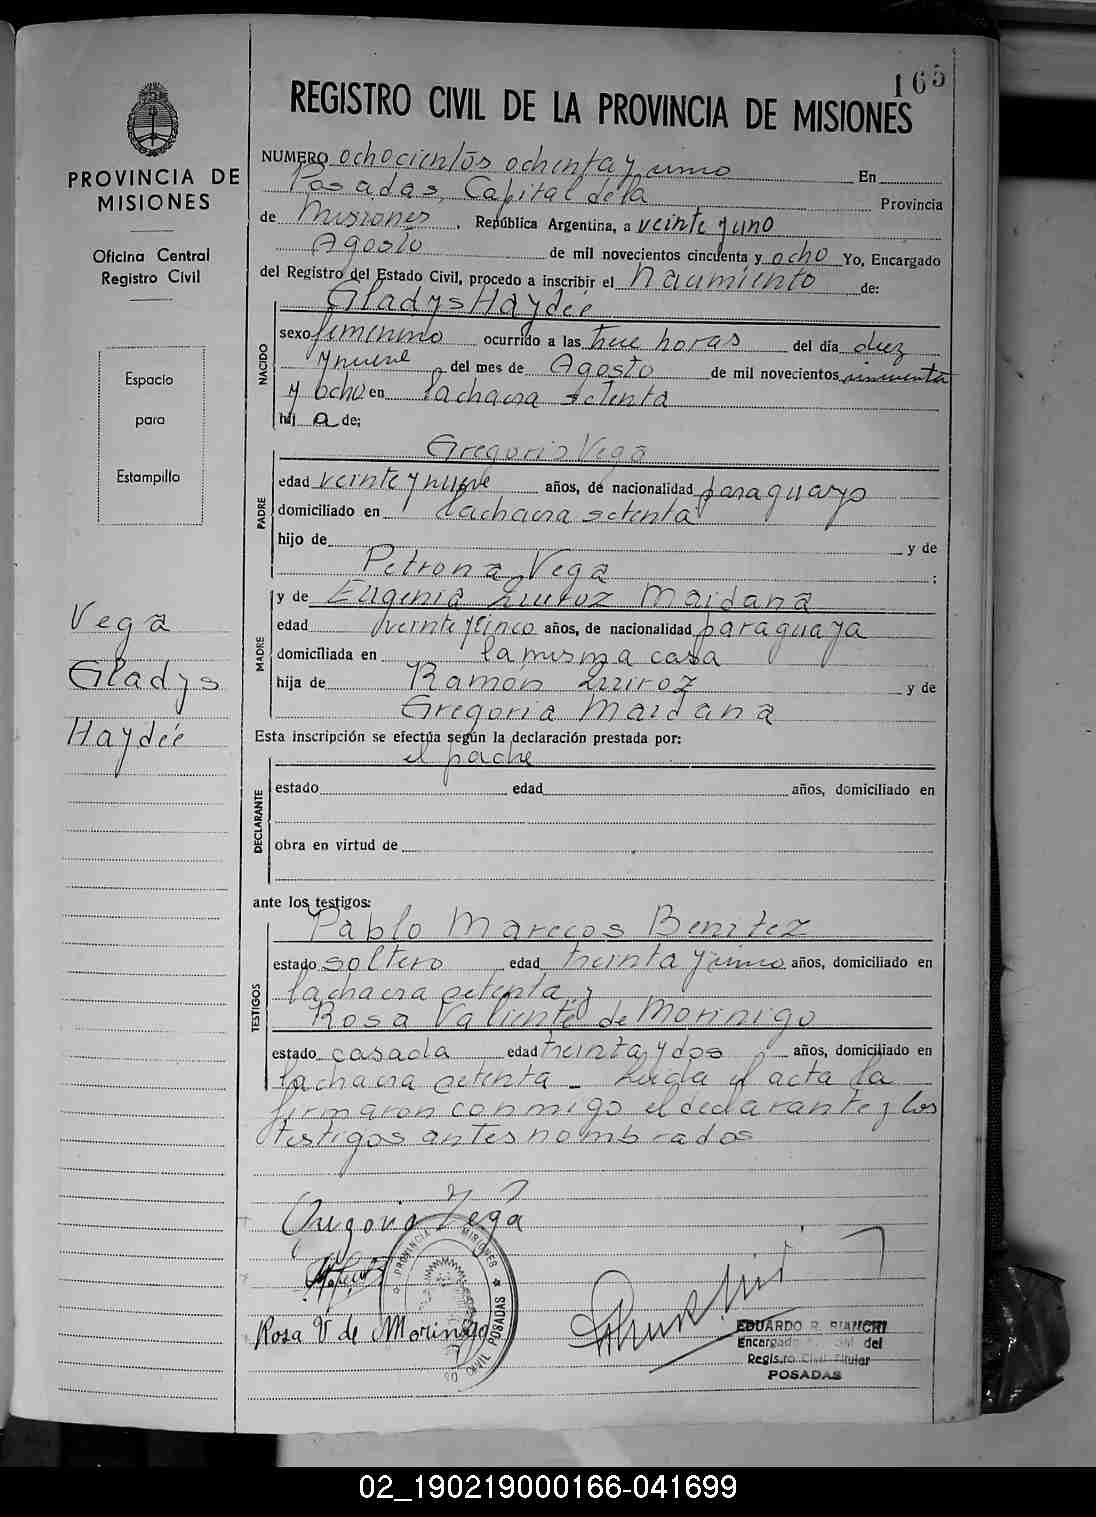 165
REGISTRO CIVIL DE LA PROVINCIA DE MISIONES
PROVINCIA DE
MISIONES
Oficina Central
Registro Civil
Espacio
para
Estampilla
Vega
Gladys
Haydée
NUMERO ochocientos ochenta y uno En
Posadas, Capital de la Provincia
de Misiones, República Argentina, a veinte y uno
Agosto de mil novecientos cincuenta y ocho Yo, Encargado
del Registro del Estado Civil, procedo a inscribir el Nacimiento de:
NACIDO
Gladys Haydée
sexo femenino ocurrido a las trece horas del día diez
y nueve del mes de Agosto de mil novecientos cincuenta
y ocho en la chacra setenta
hij a de;
PADRE
Gregorio Vega
edad veinte y nueve años, de nacionalidad paraguayo
domiciliado en la chacra setenta
hijo de y de
Petrona Vega ;
MADRE
y de Eugenia Quiroz Maidana
edad veinte y cinco años, de nacionalidad paraguaya
domiciliada en la misma casa
hija de Ramón Quiroz y de
Gregoria Maidana
Esta inscripción se efectúa según la declaración prestada por:
DECLARANTE
el padre
estado edad años, domiciliado en
obra en virtud de
ante los testigos:
TESTIGOS
Pablo Marecos Benitez
estado soltero edad treinta y uno años, domiciliado en
la chacra setenta y
Rosa Valiente de Morinigo
estado casada edad treinta y dos años, domiciliado en
la chacra setenta _ Leida el acta la
firmaron conmigo el declarante y los
testigos antes nombrados
Gregorio Vega
PROVINCIA MISIONES
CIVIL POSADAS
Rosa V de Morinigo
EDUARDO R. BIANCHI
Encargado del
Registro Civil Titular
POSADAS
02_190219000166-041699